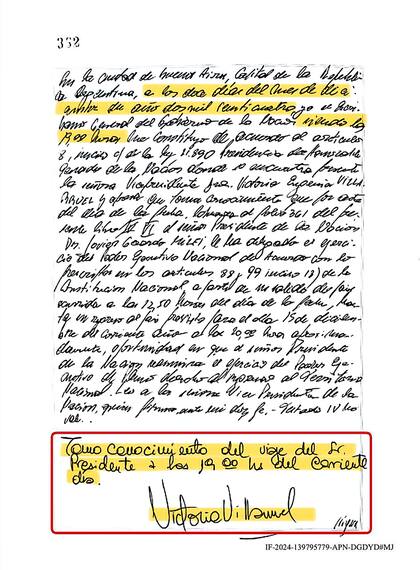 352
En la ciudad de Buenos Aires, Capital de la República
Argentina, a los doce días del mes de dici
embre de año dos mil veinticuatro, yo el Escri
bano General del Gobierno de la Nación siendo las
19,00 horas me constituyo de acuerdo al artículo
8, inciso c) de la ley 21.890 Presidencia del Honorable
Senado de la Nación donde se encuentra presente
la señora Vicepresidente Dra. Victoria Eugenia VILLA
RRUEL y a efectos que tome conocimiento que por acta
del día de la fecha, labrada al folio 351 del pre
sente Libro VI el señor Presidente de la Nación
Dn. Javier Gerardo MILEI, le ha delegado el ejerci
cio del Poder Ejecutivo Nacional de acuerdo con lo
prescripto en los artículos 88 y 99 inciso 18) de la
Constitución Nacional, a partir de su salida del país
ocurrida a las 12,50 horas del día de la fecha, has
ta su regreso al país previsto para el día 15 de diciem
bre del corriente año a las 20,00 horas aproxima
damente, oportunidad en que el señor Presidente
de la Nación reasumirá el ejercicio del Poder Eje
cutivo de pleno derecho al regresar al territorio
Nacional. Leo a la señora Vice Presidente de la
Nación, quien firma, ante mí doy fe.-
Tomo conocimiento del viaje del Sr.
Presidente a las 19.00 hs del corriente
día.
Victoria Villarruel
sigue
IF-2024-139795779-APN-DGDYD#MJ